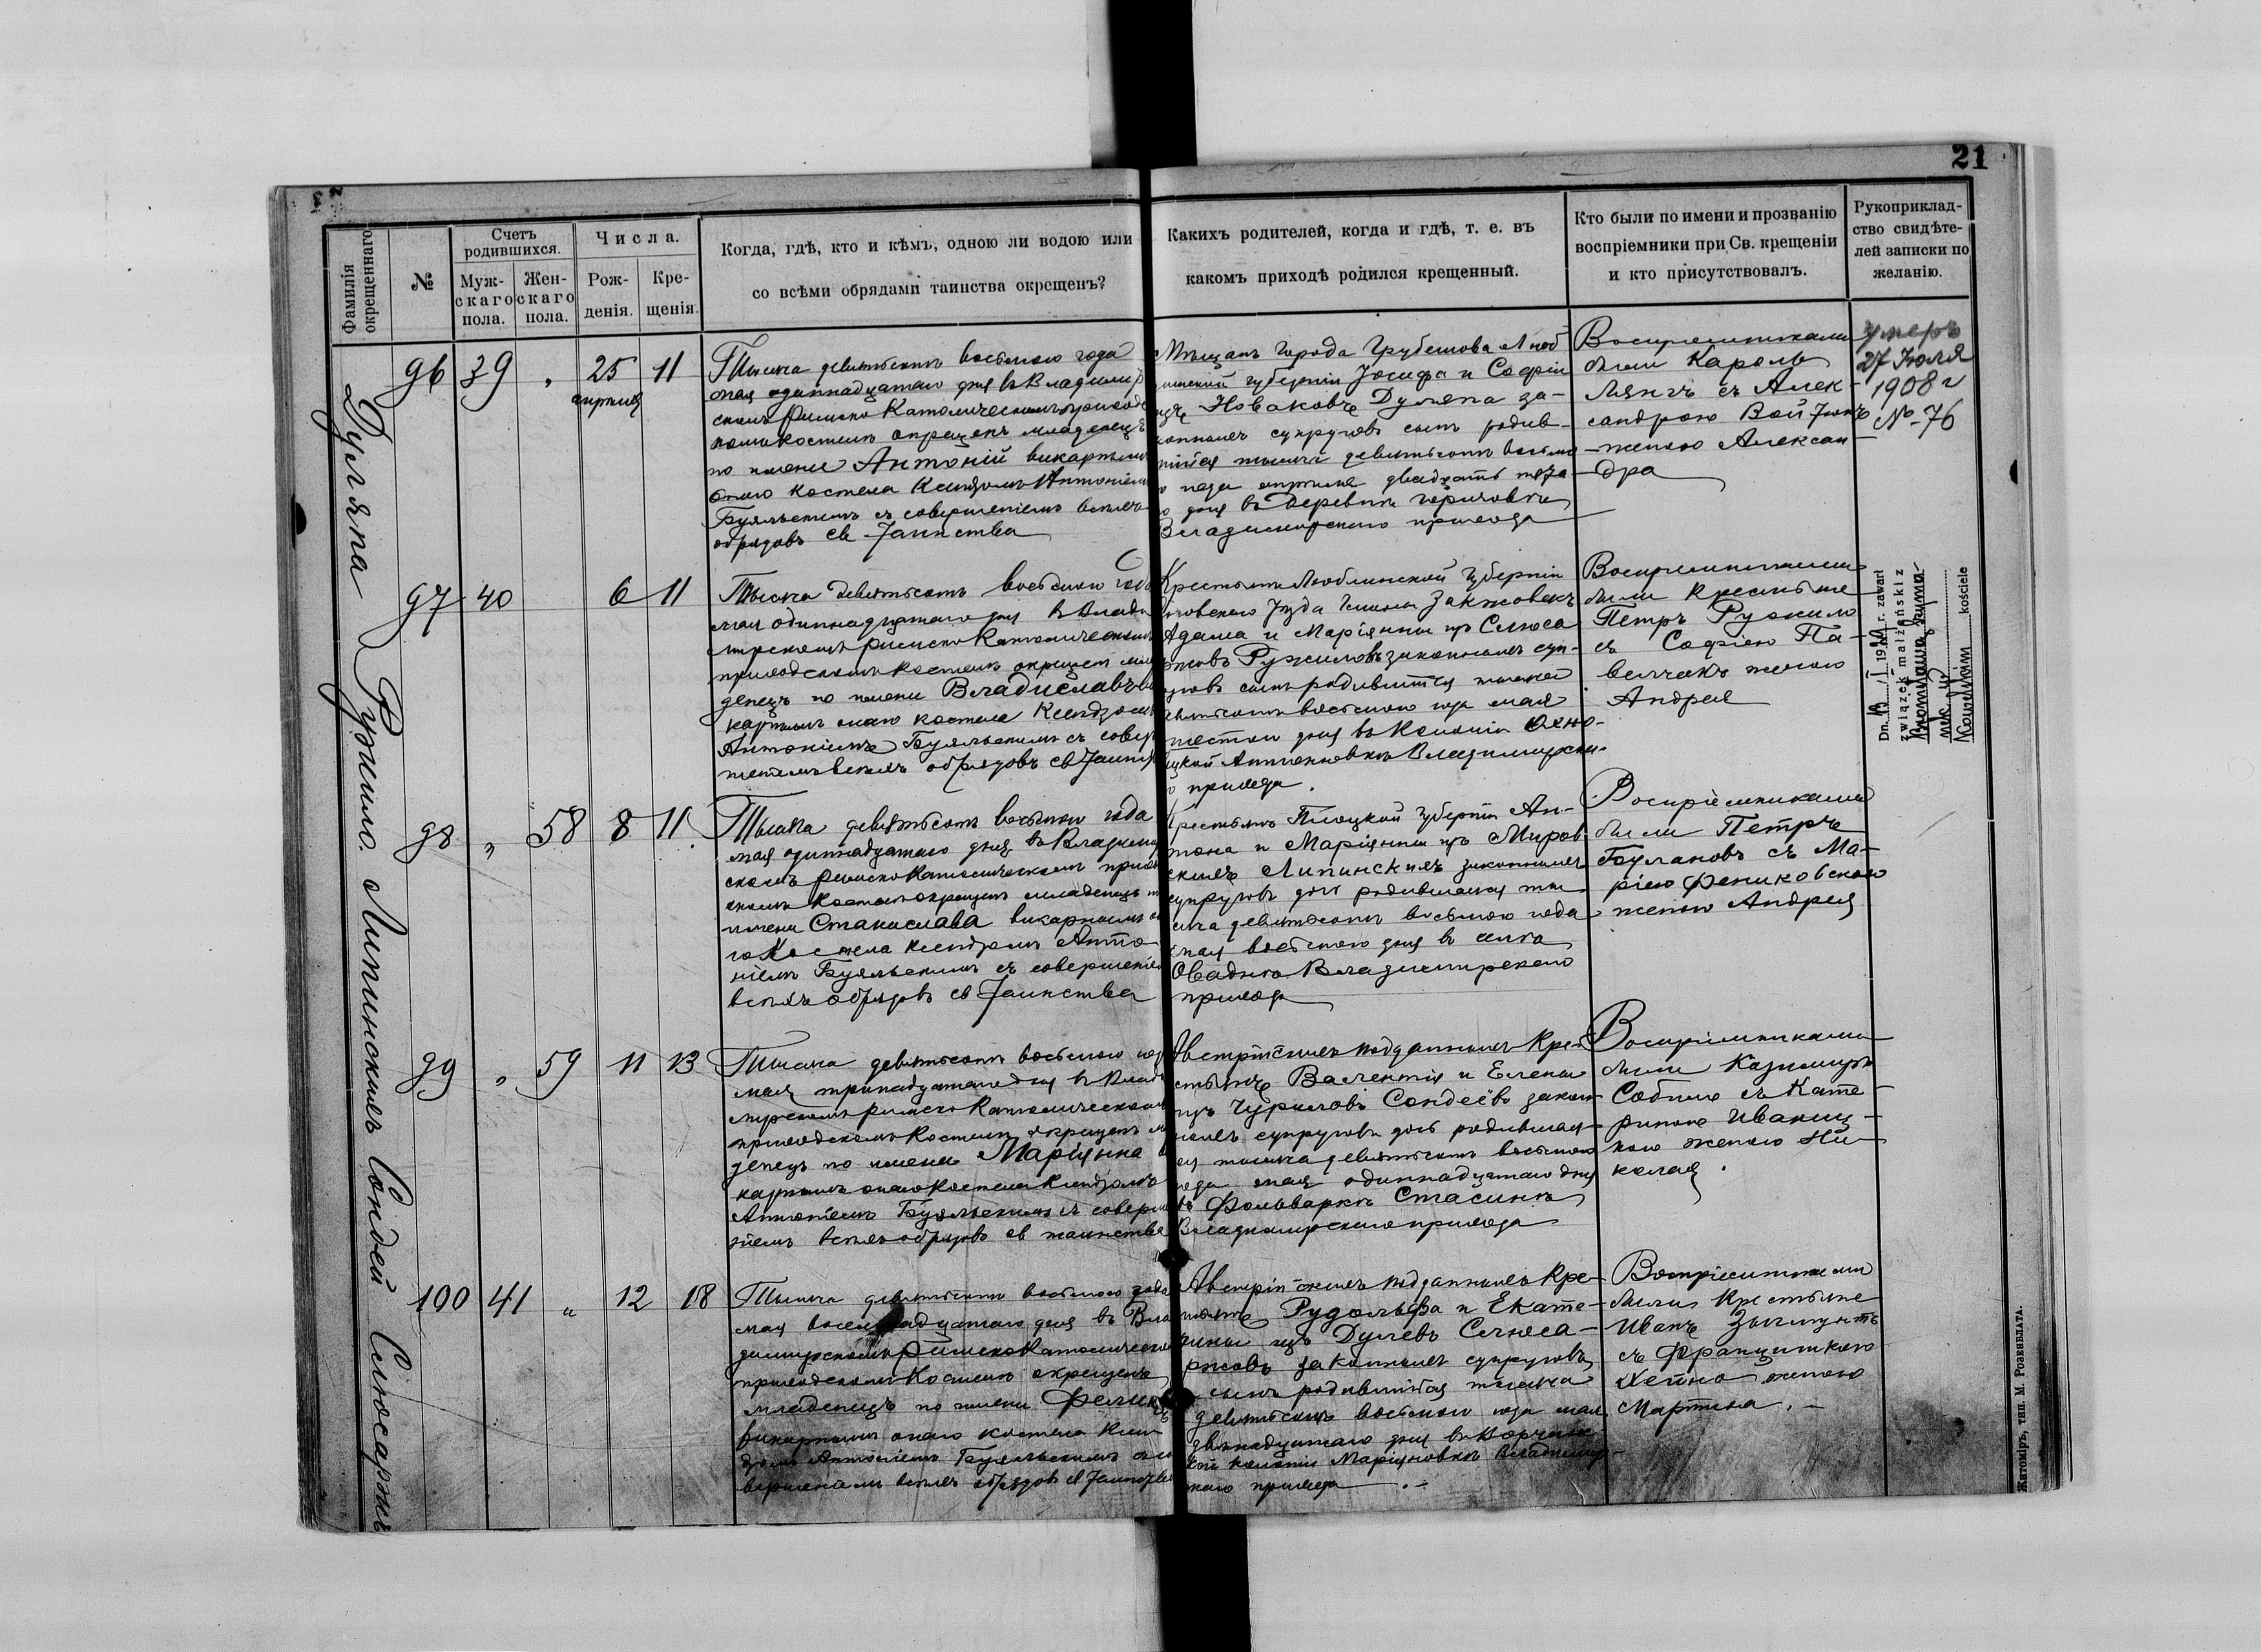 21
Фамилія окрещеннаго
№
Счетъ родившихся.
Муж-скаго пола.
Жен-скаго пола.
Числа.
Рож-денія.
Кре-щенія.
Когда, гдѣ, кто и кѣмъ, одною ли водою или
со всѣми обрядами таинства окрещенъ?
Какихъ родителей, когда и гдѣ, т. е. въ
какомъ приходѣ родился крещенный.
Кто были по имени и прозванію
воспріемники при Св. крещеніи
и кто присутствовалъ.
Рукоприклад-
ство свидѣте-
лей записки по
желанію.
Дуляпа
96 39 „ 25 11
апрѣля
Тысяча девятьсотъ восьмого года
мая одиннадцатаго дня въ Владимір
скомъ Римско Католическомъ приход
скомъ костелѣ окрещенъ младенецъ
по имени Антоній викарнымъ
оного костела Ксендзомъ Антоніемъ
Буяльскимъ съ совершеніемъ всѣхъ
обрядовъ св Таинства
Мѣщанъ города Грубешова Люб
линской губерніи Юсифа и Софіи
изъ Новаковъ Дуляпа за-
конныхъ супруговъ сынъ родив-
шійся тысяча девятьсотъ восьмо
го года апрѣля двадцать пята
го дня въ деревнѣ
Владимирскаго прихода
Воспріемниками
были Кароль
Лянгъ съ Алек-
сандрою Вой
женою Алексан
дра
умеръ
27 Юля
1908 г
№ 76
Ружило.
97 40 6 11
Тысяча девятьсотъ восьмого года
мая одиннадцатаго дня въ Влади
мірскомъ Римско Католическомъ
приходскомъ костелѣ окрещен мла
денецъ по имени Владиславъ ви
карнымъ оного костела Ксендзомъ
Антоніемъ Буяльскимъ съ совер
шеніемъ всѣхъ обрядовъ св Таинст
Крестьянъ Люблинской Губерніи
Уѣзда Гмины Закжовекъ
Адама и Маріянны изъ Слюса
ржовъ Ружиловъ законныхъ суп-
руговъ сынъ родившійся тысяча
девятьсотъ восьмого года мая
шестого дня въ Колоніи
Антоновкѣ Владимирска
го прихода.
Воспріемниками
были Крестьяне
Петръ Ружило
съ Софіею Па-
велчакъ женою
Андрея
Dn. 19 r. zawarł
związek małżeński z
kościele
Липинскихъ
98 „ 58 8 11
Тысяча девятьсотъ восьмого года
мая одиннадцатаго дня въ Владимир
скомъ Римско Католическомъ приход
скомъ костелѣ окрещенъ младенецъ по
имени Станислава викарнымъ он
го Костела Ксендзомъ Анто
ніемъ Буяльскимъ съ совершеніем
всѣхъ обрядовъ св Таинства
Крестьянъ Плоцкой Губерніи Ан-
тона и Маріянны изъ Миров
скихъ Липинскихъ законныхъ
супруговъ дочь родившаяся ты
сяча девятьсотъ восьмого года
мая восьмого дня въ селѣ
Овадно Владимирскаго
прихода
Воспріемниками
были Петръ
Гоулановъ съ Ма-
ріею Фениковскою
женою Андрея
Сондей
99 „ 59 11 13
Тысяча девятьсотъ восьмого года
мая тринадцатаго дня въ Влади
мирскомъ Римско Католическомъ
приходскомъ Костелѣ окрещенъ мла
денецъ по имени Маріянна ви
карнымъ оного Костела Ксендзомъ
Антоніемъ Буяльскимъ съ соверше
ніемъ всѣхъ обрядовъ св таинства
Австрійскихъ подданныхъ Кре-
стьянъ Валентія и Елены
изъ Чуриловъ Сондеевъ закон
ныхъ супруговъ дочь родившая
ся тысяча девятьсотъ восьмого
года мая одиннадцатаго дня
въ Фольваркѣ Стасинѣ
Владимирскаго прихода
Воспріемниками
были Казимиръ
Собчило съ Кате
риною Иваниц-
кою женою Ни-
колая.
Слюсаржъ
100 41 „ 12 18
Тысяча девятьсотъ восьмого года
мая восемнадцатаго дня въ Вла
димирскомъ Римско Католическом
приходскомъ Костелѣ окрещенъ
младенецъ по имени Феликсъ
викарнымъ оного костела Ксен
дзомъ Антоніемъ Буяльскимъ съ со
вершеніемъ всѣхъ обрядовъ св Таинства
Австрійскихъ подданныхъ Кре-
стьянъ Рудольфа и Екате-
рины изъ Дулевъ Слюса-
ржовъ законныхъ супруговъ
сынъ родившійся тысяча
девятьсотъ восьмого года мая
двѣнадцатаго дня въ
колоніи Маріяновкѣ Владимир
скаго прихода
Воспріемниками
были Крестьяне
Иванъ Зыгмунтъ
съ Францишкою
Хейно женою
Мартина.
Житомiръ, тип. М. Розенблата.